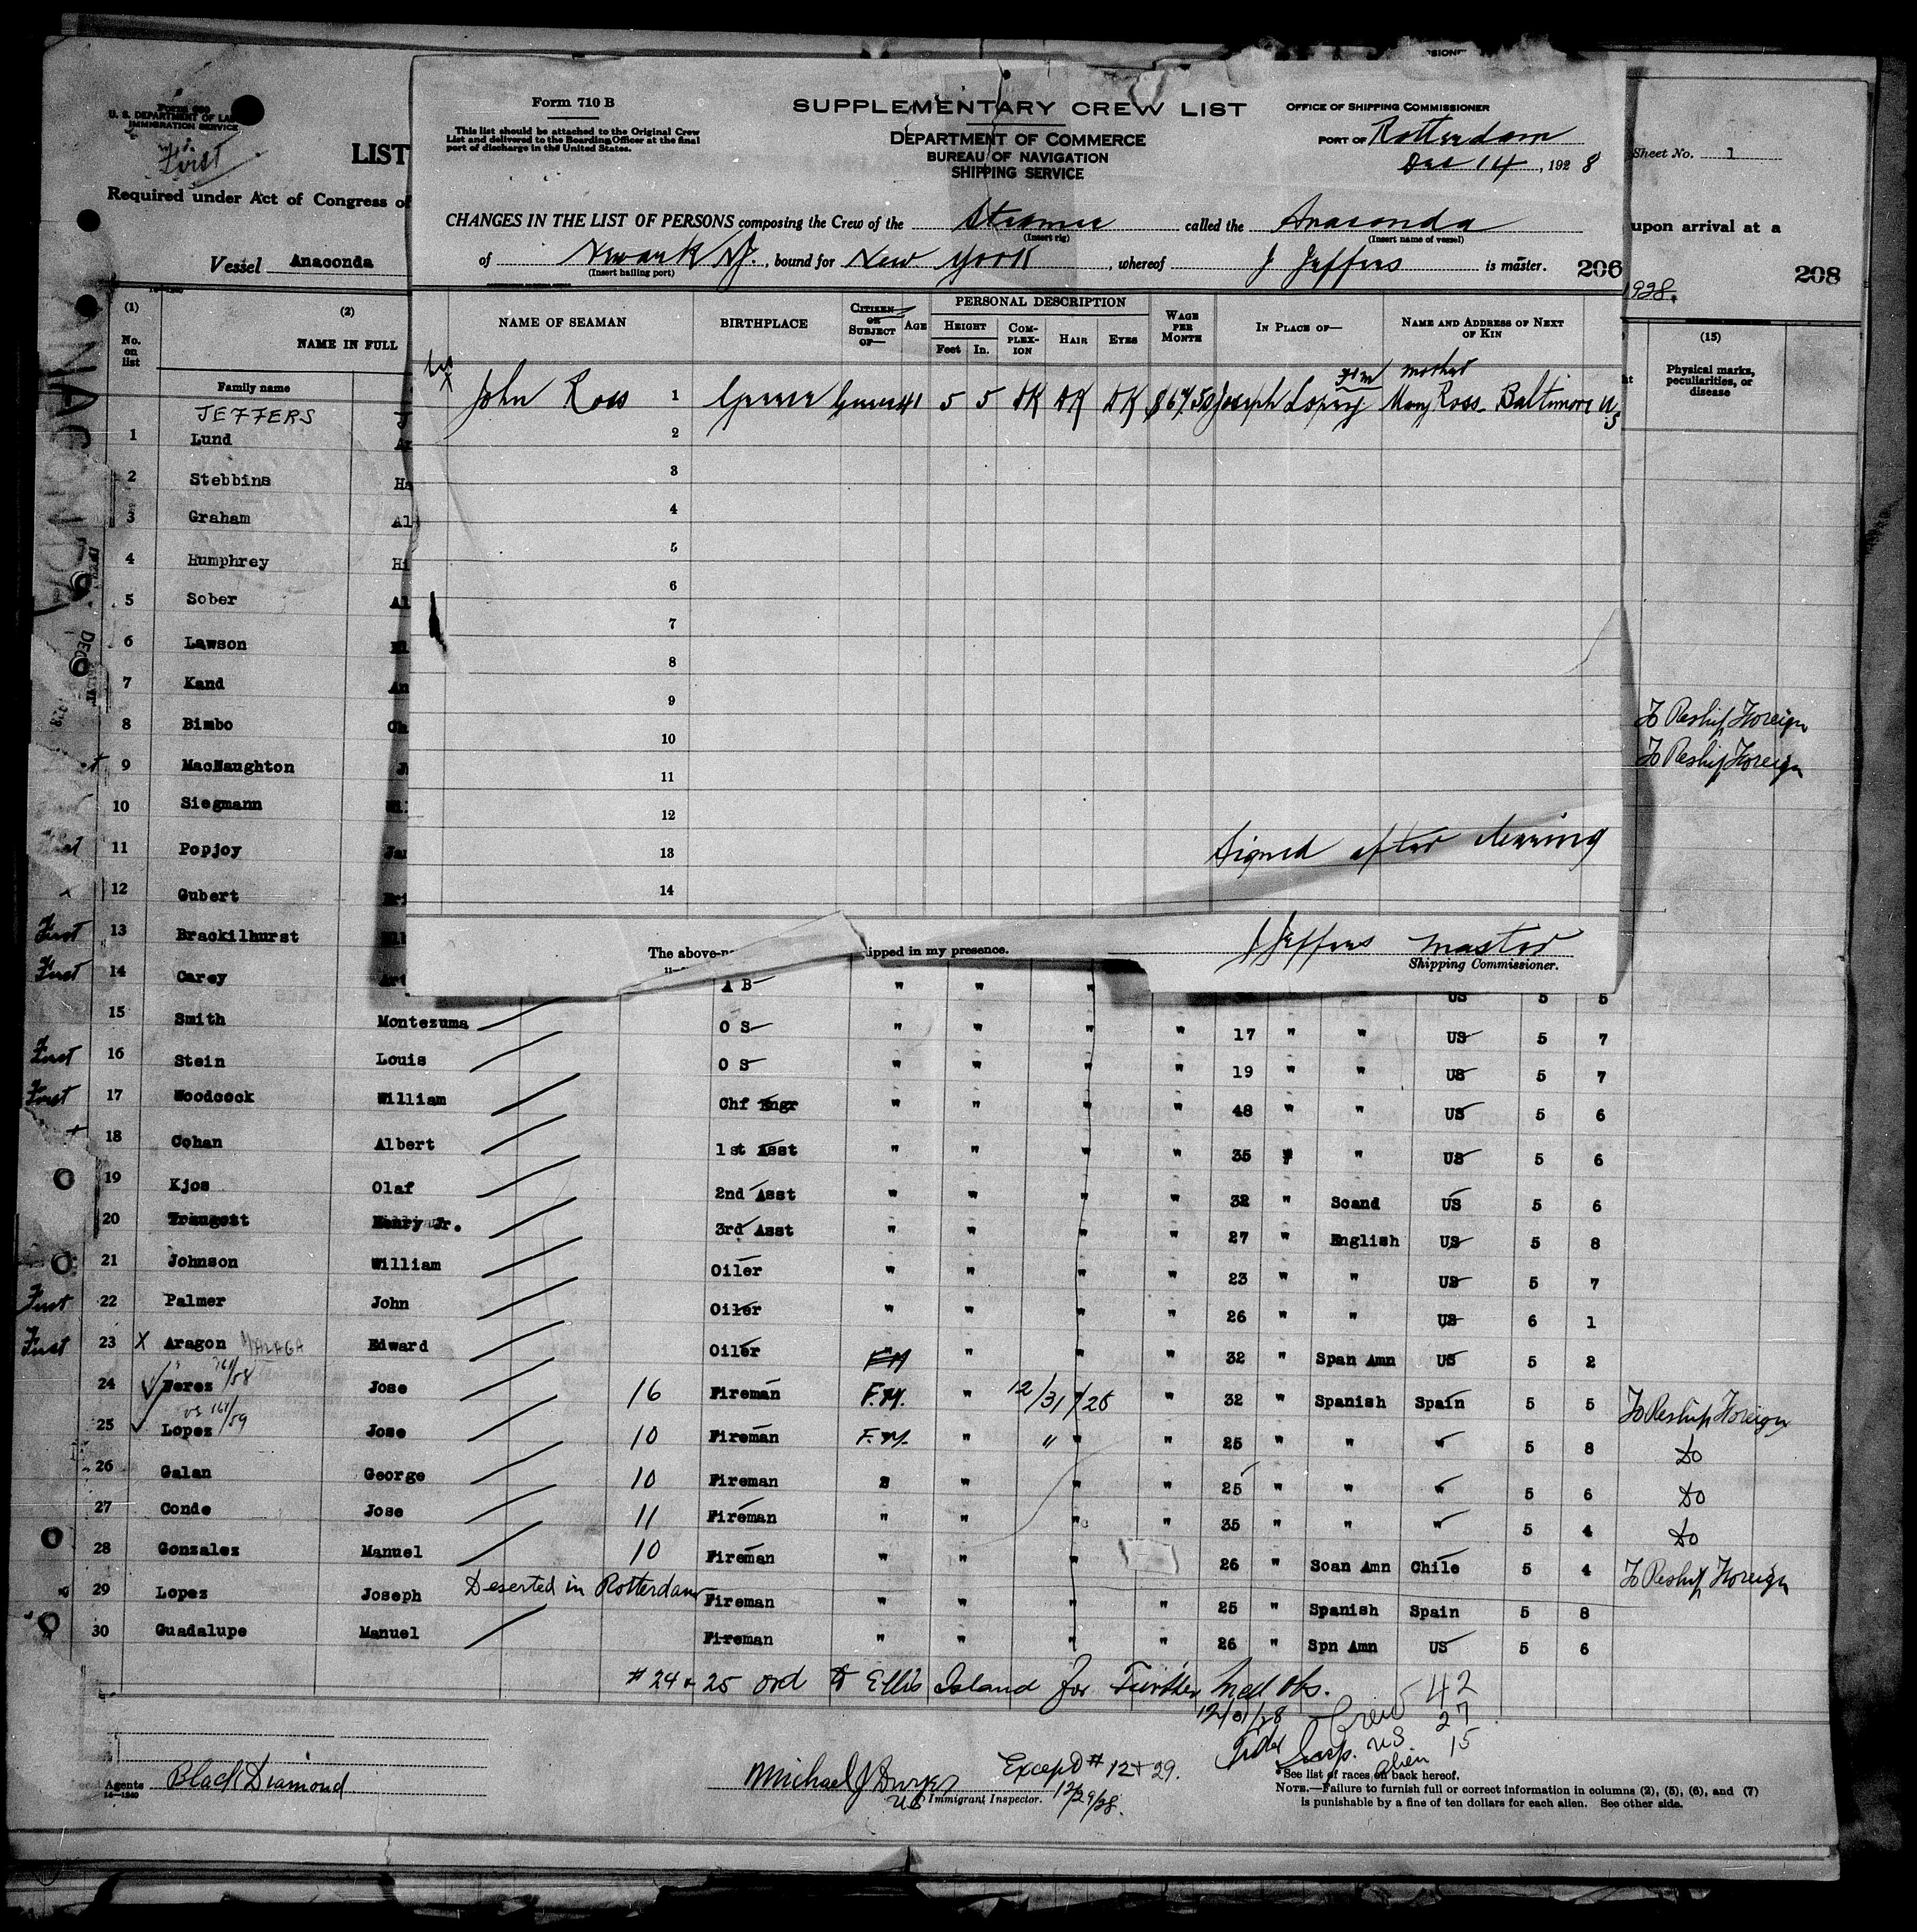 Form 710 B
SUPPLEMENTARY CREW LIST
OFFICE OF SHIPPING COMMISSIONER
This list should be attached to the Original Crew
List and delivered to the Boarding Officer at the final
port of discharge in the United States.
DEPARTMENT OF COMMERCE
BUREAU OF NAVIGATION
SHIPPING SERVICE
PORT OF Rotterdam
Dec 14, 1928
CHANGES IN THE LIST OF PERSONS composing the Crew of the Steamer called the Anaconda
(Insert rig) (Insert name of vessel)
of Newark NJ., bound for New York, whereof J Jeffers is master. 206
(Insert hailing port)
NAME OF SEAMAN BIRTHPLACE CITIZEN OR SUBJECT OF— AGE PERSONAL DESCRIPTION HEIGHT Feet In. COMPLEXION HAIR EYES WAGE PER MONTH IN PLACE OF— NAME AND ADDRESS OF NEXT OF KIN
John Ross 1 41 5 5 DK DK DK Joseph Lopez mother Mary Ross Baltimore US
2
3
4
5
6
7
8
9
10
11
12
13 Signed after clearing
14
The above- shipped in my presence.
J Jeffers Master
Shipping Commissioner.
U. S. DEPARTMENT OF LA
IMMIGRATION SERVICE
First
LIST
Sheet No. 1
Required under Act of Congress of
upon arrival at a
Vessel Anaconda
1928.
208
ANACONDA
(1) (2) (15)
No. on list
NAME IN FULL
Family name
Physical marks, peculiarities, or disease
JEFFERS
1 Lund
2 Stebbins Ha
3 Graham Al
4 Humphrey Hi
5 Sober Al
6 Lawson
7 Kand An
8 Bimbo Ch To Reship Foreign
9 MacNaughton To Reship Foreign
10 Siegmann Wil
11 Popjoy Jam
12 Gubert
First 13 Brackilhurst
First 14 Carey A B " " " US 5 5
15 Smith Montezuma O S " " " " 17 " " US 5 7
First 16 Stein Louis O S " " " " 19 " " US 5 7
First 17 Woodcock William Chf Engr " " " " 48 " " US 5 6
18 Cohan Albert 1st Asst " " " " 35 " " US 5 6
19 Kjos Olaf 2nd Asst " " " " 32 " Scand US 5 6
20 Traugott Henry Jr. 3rd Asst " " " " 27 " English US 5 8
21 Johnson William Oiler " " " " 23 " " US 5 7
First 22 Palmer John Oiler " " " " 26 " " US 6 1
First 23 X Aragon MALAGA Edward Oiler " " " 32 " Span Amn US 5 2
24 Perez Jose 16 Fireman F.M. " 12/31/28 " 32 " Spanish Spain 5 5 To Reship Foreign
25 Lopez Jose 10 Fireman F.M. " " " 25 " " " 5 8 Do
26 Galan George 10 Fireman " " " 25 " " " 5 6 Do
27 Conde Jose 11 Fireman " " " " 35 " " " 5 4 Do
28 Gonzalez Manuel 10 Fireman " " " " 26 " Soan Amn Chile 5 4 To Reship Foreign
29 Lopez Joseph Deserted in Rotterdam Fireman " " " " 25 " Spanish Spain 5 8
30 Guadalupe Manuel Fireman " " " " 26 " Spn Amn US 5 6
# 24 & 25 ord to Ellis Island for Further Med Obs.
12/31/28
Crew 42
US 27
alien 15
Agents Black Diamond
Except # 12 & 29.
US Immigrant Inspector. 12/29/28.
See list of races on back hereof.
NOTE.—Failure to furnish full or correct information in columns (2), (5), (6), and (7)
is punishable by a fine of ten dollars for each alien. See other side.